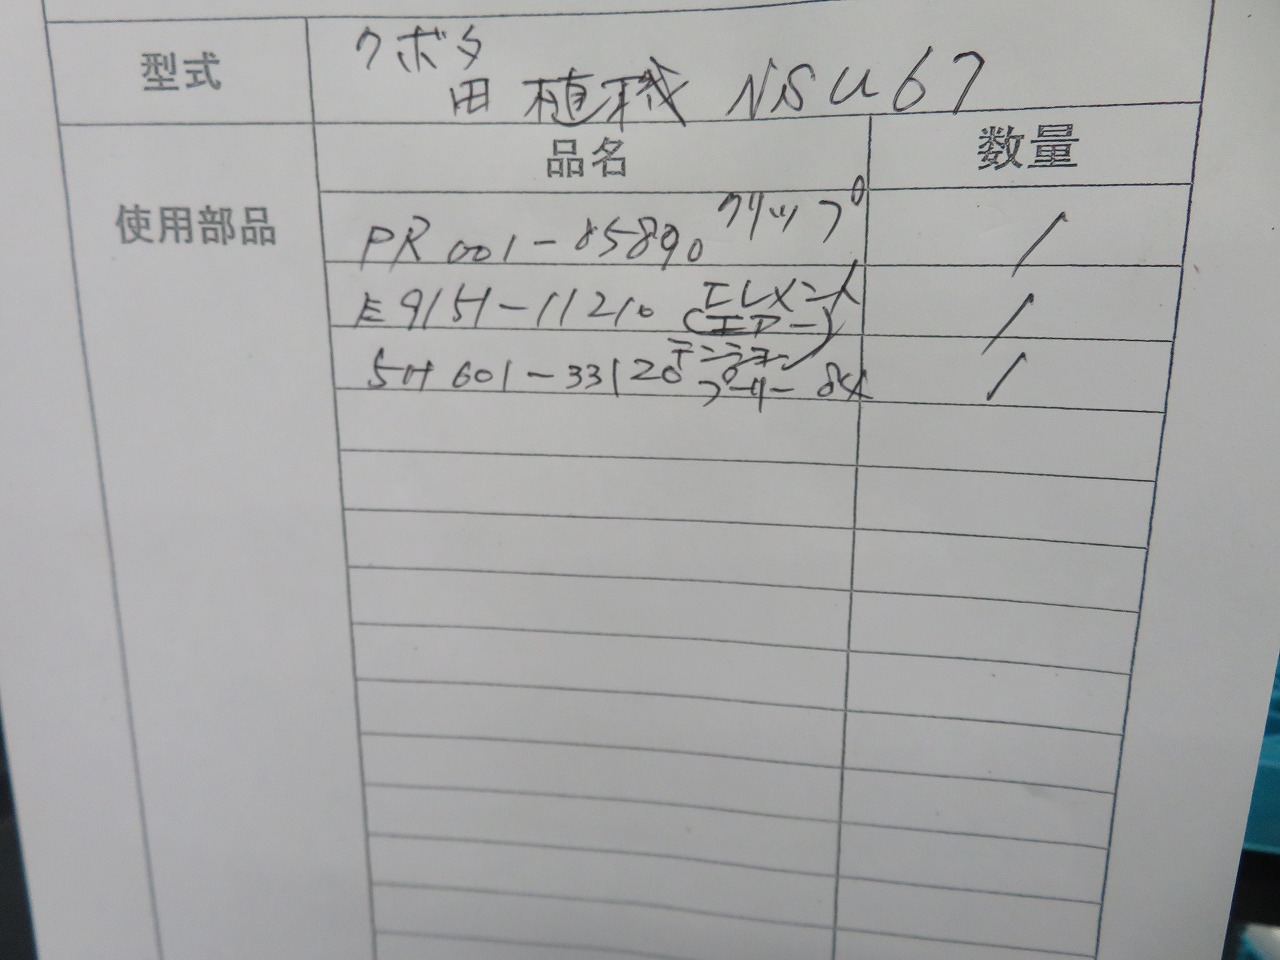 型式 クボタ
田植機 NSU67
品名 数量
使用部品
PR001-85890 クリップ 1
E9151-11210 エレメント(エアー) 1
5H601-33120 テンションプーリー 84 1